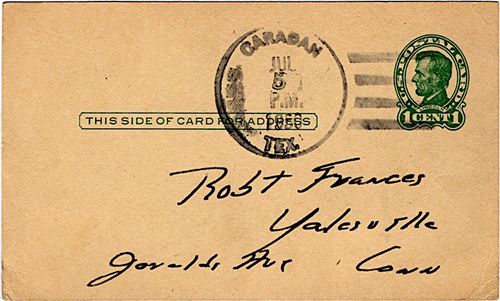 CARADAN
JUL
5
P.M.
TEX.
U.S. POSTAL CARD
1 CENT 1
THIS SIDE OF CARD FOR ADDRESS
Robt Frances
Yalesville
Ave Conn